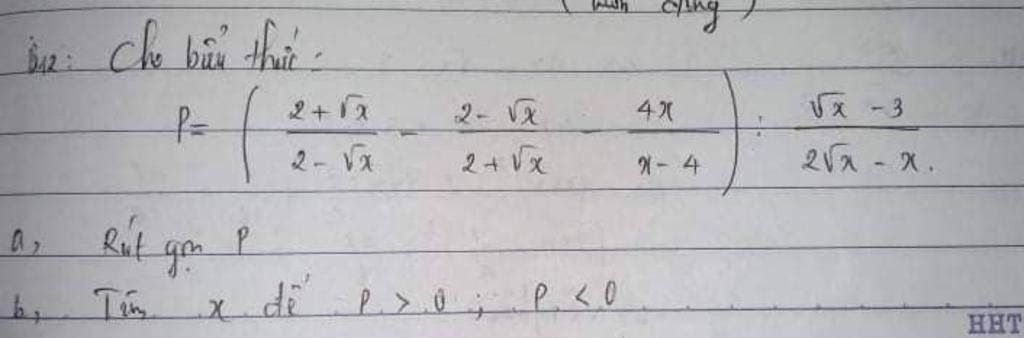 ( cứng )
B12: Cho biểu thức:
P = ( (2 + √x)/(2 - √x) - (2 - √x)/(2 + √x) - 4x/(x - 4) ) : (√x - 3)/(2√x - x).
a, Rút gọn P
b, Tìm x để P > 0 ; P < 0
HHT